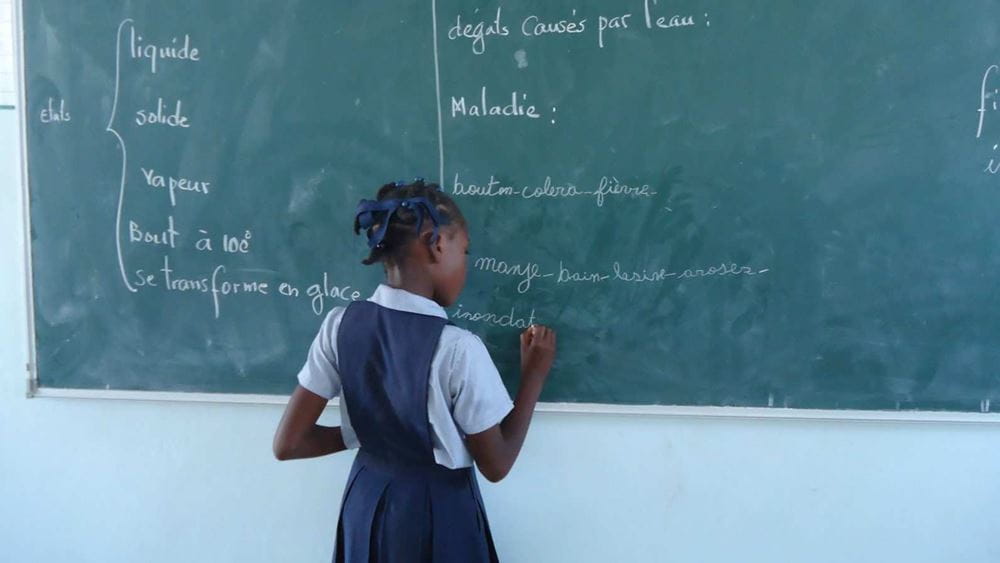 Etats
liquide
solide
vapeur
Bout à 100°
se transforme en glace
dégats causés par l'eau :
Maladie :
bouton-colera-fièvre-
manje-bain-lesive-arosez-
inondat
fi
i